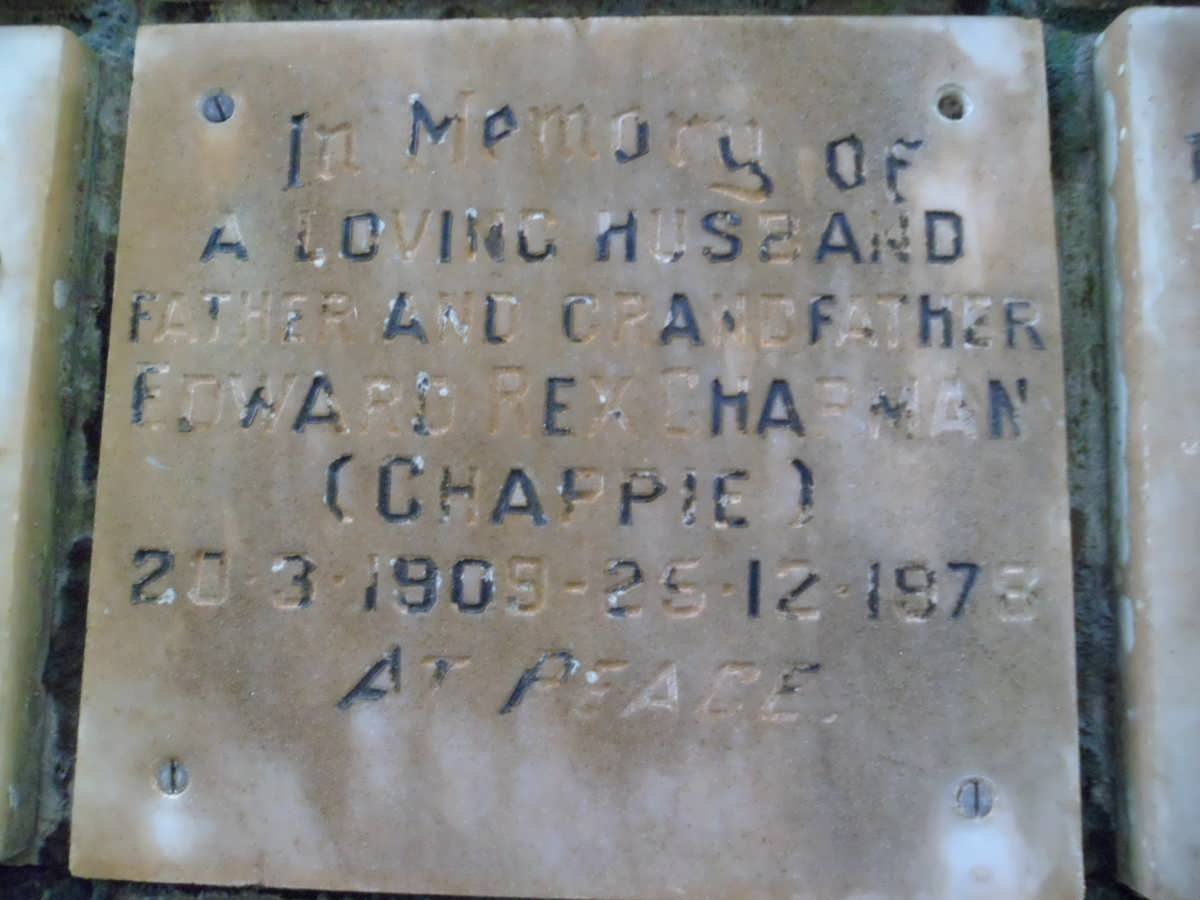 In Memory of
A LOVING HUSBAND
FATHER AND GRANDFATHER
EDWARD REX CHAPMAN
(CHAPPIE)
20·3·1909-25·12·1978
AT PEACE.